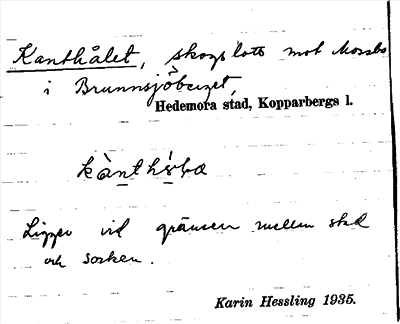 Kanthålet, skogslott mot Morsbo
i Brunnsjöberget,
Hedemora stad, Kopparbergs l.
Ligger vid gränsen mellan stad
och socken.
Karin Hessling 1935.